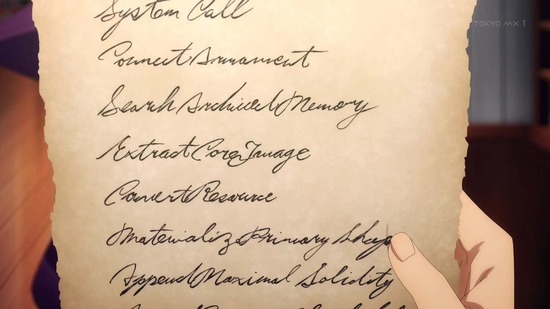 TOKYO MX 1
System Call
Connect Armament
Search Archived Memory
Extract Core Image
Convert Resource
Materialize Primary Shap
Append Maximal Solidity